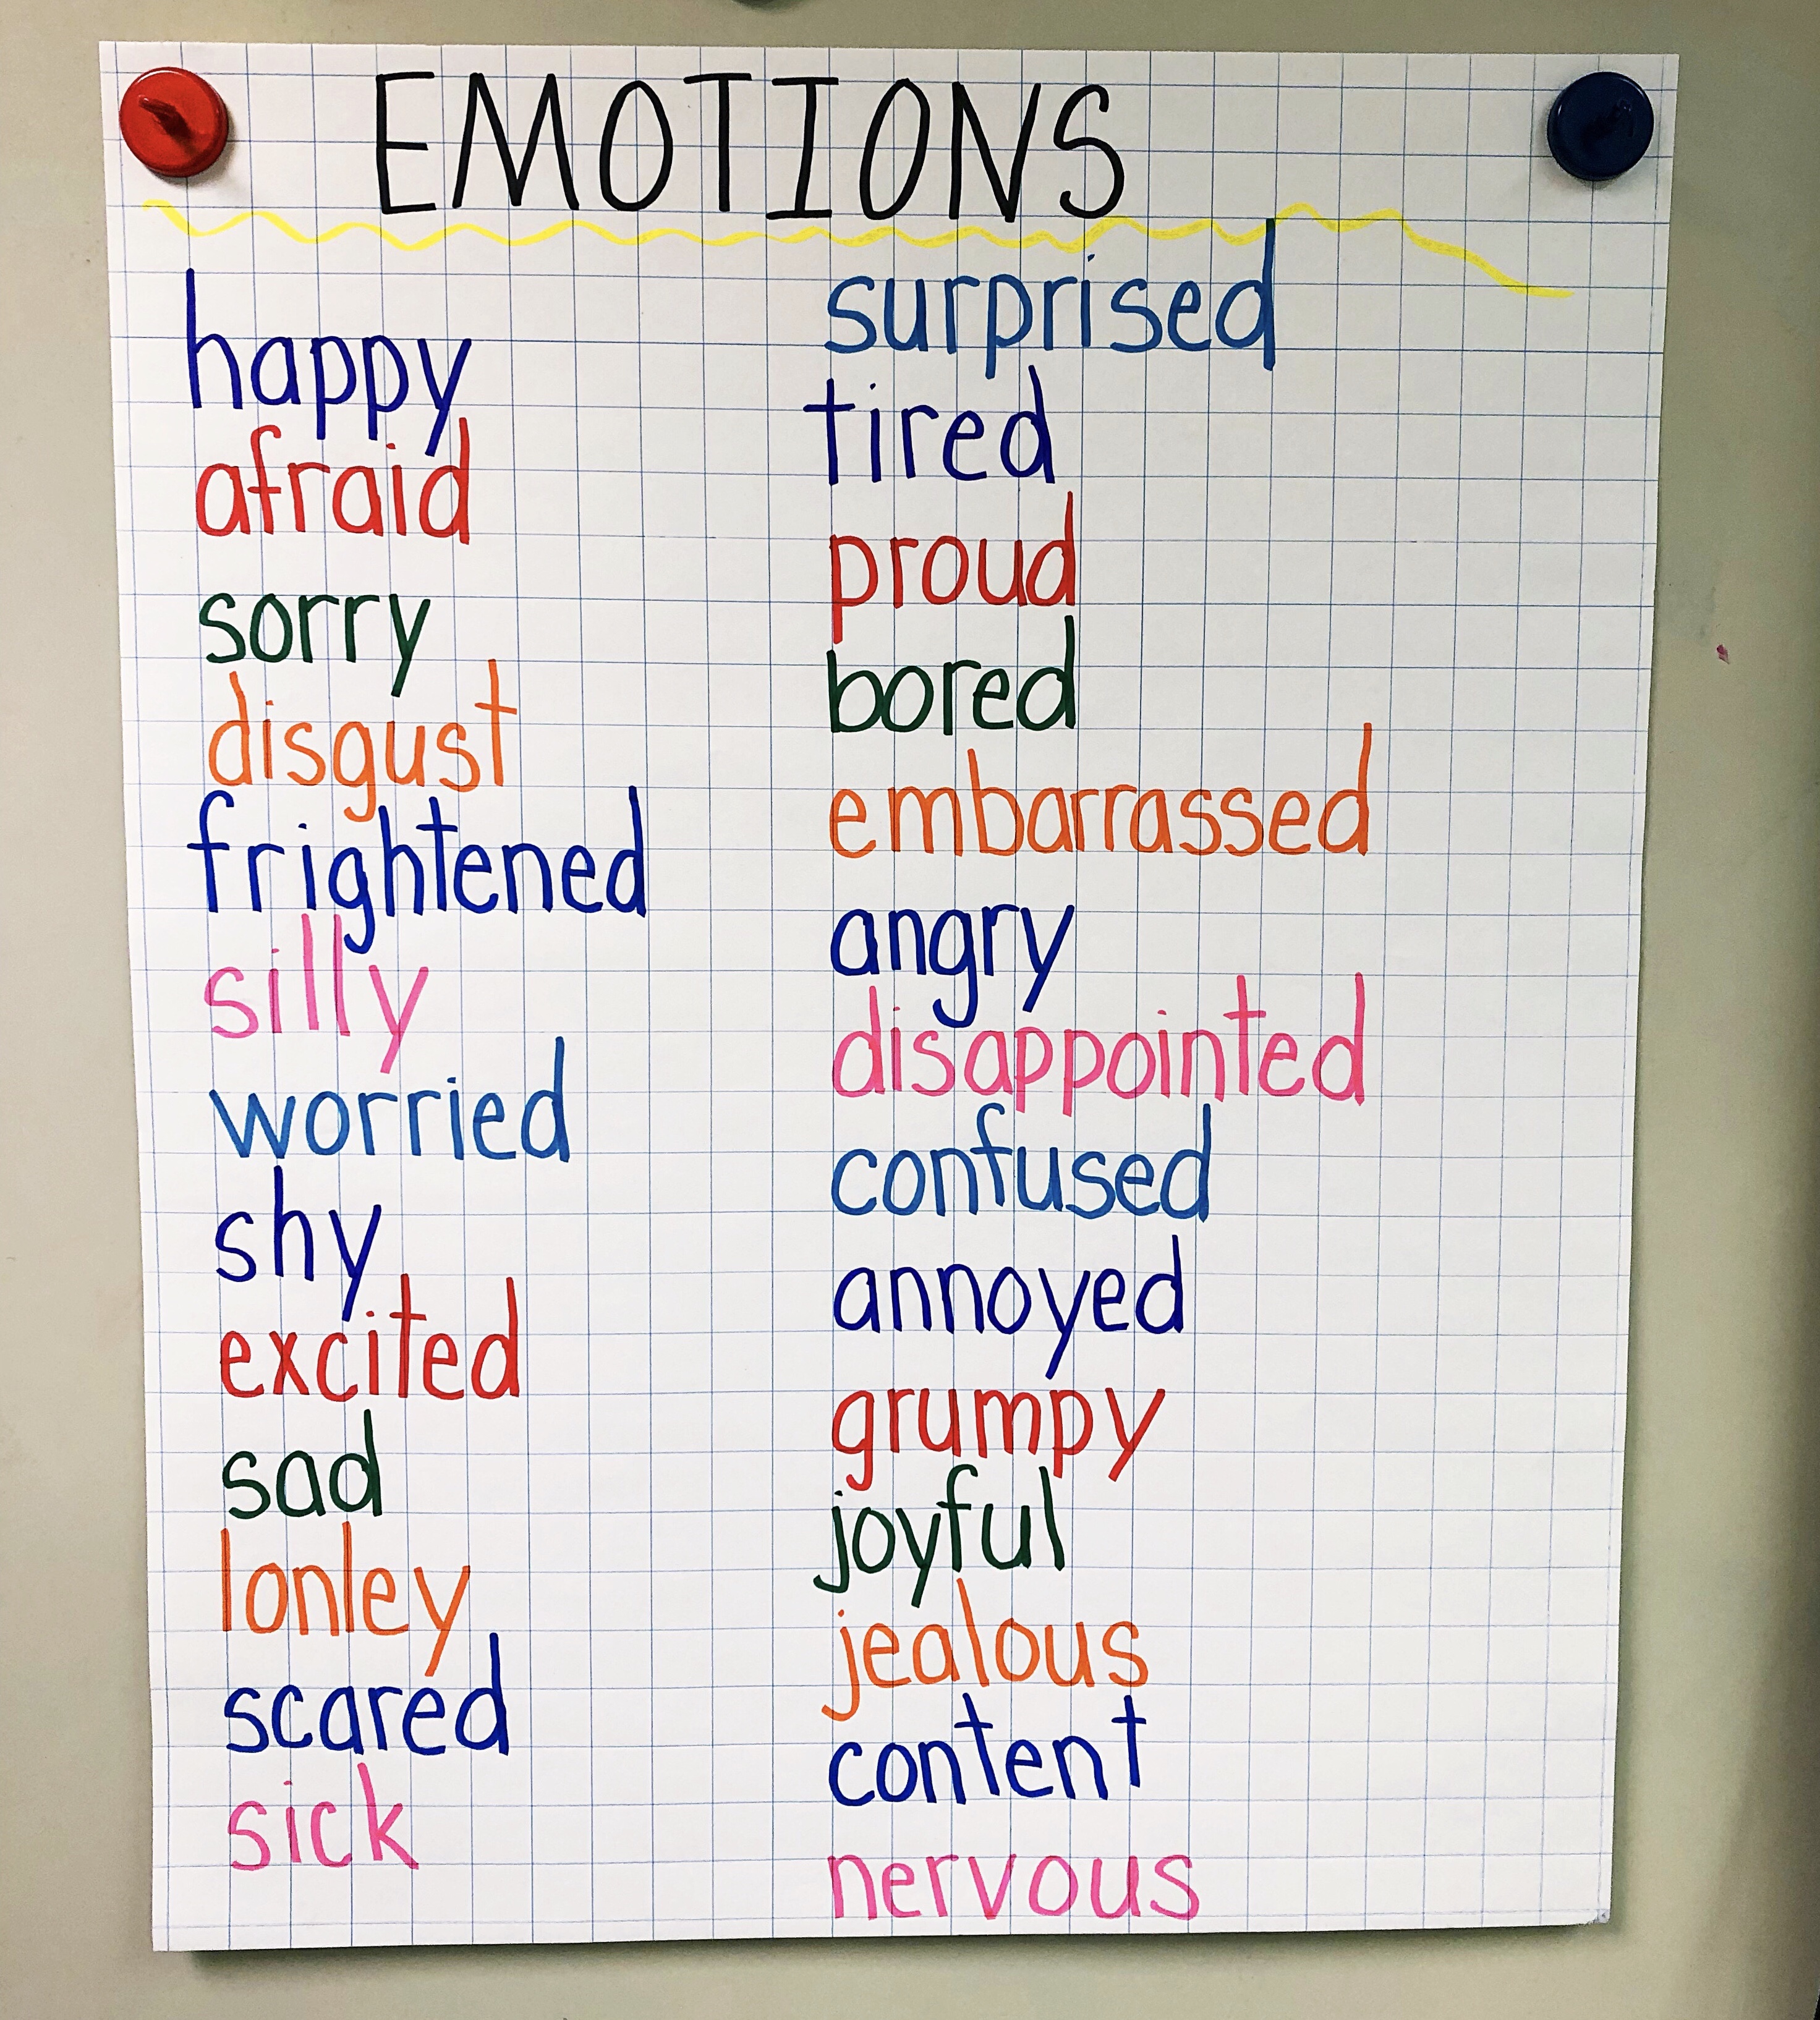 EMOTIONS
happy
afraid
sorry
disgust
frightened
silly
worried
shy
excited
sad
lonley
scared
sick
surprised
tired
proud
bored
embarrassed
angry
disappointed
confused
annoyed
grumpy
joyful
jealous
content
nervous